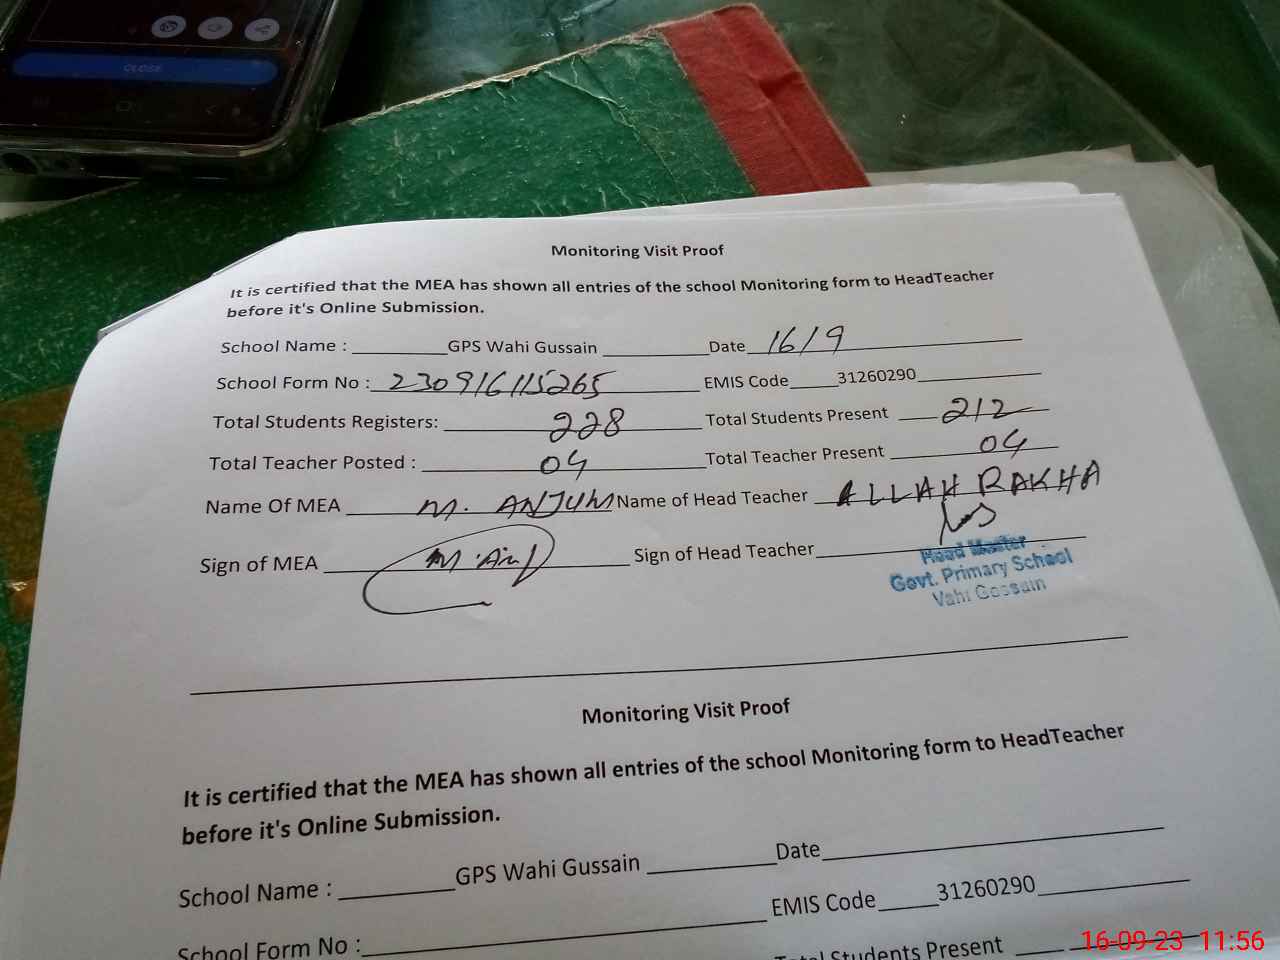 CLOSE
Monitoring Visit Proof
It is certified that the MEA has shown all entries of the school Monitoring form to HeadTeacher
before it's Online Submission.
School Name : GPS Wahi Gussain Date 16/9
School Form No : 230916115265 EMIS Code 31260290
Total Students Registers: 228 Total Students Present 212
Total Teacher Posted : 04 Total Teacher Present 04
Name Of MEA M. ANJUM Name of Head Teacher ALLAH RAKHA
Sign of MEA Sign of Head Teacher
Head Master
Govt. Primary School
Vahi Gossain
Monitoring Visit Proof
It is certified that the MEA has shown all entries of the school Monitoring form to HeadTeacher
before it's Online Submission.
School Name : GPS Wahi Gussain Date
School Form No : EMIS Code 31260290
Total Students Present
16-09-23 11:56